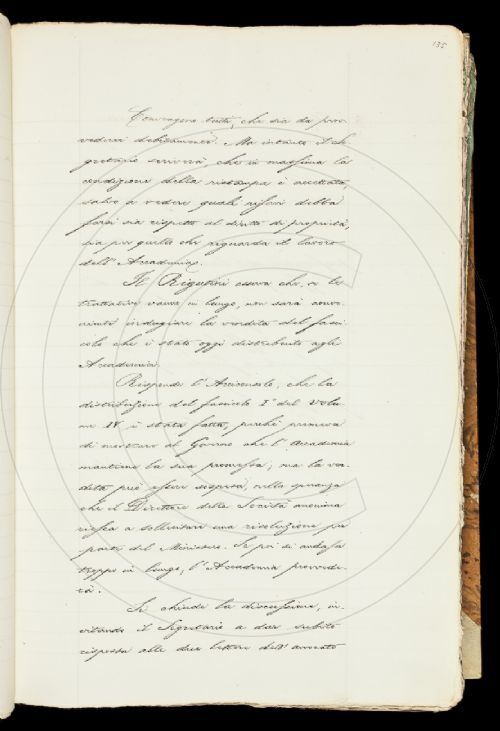 135
Convengono tutti, che sia da prov-
vedersi debitamente. Ma intanto il Se-
gretario scriverà che in massima la
condizione della ristampa è accettata,
salvo a vedere quale riserva debba
farsi sia rispetto al diritto di proprietà,
sia per quello che riguarda il lavoro
dell'Accademia.
Il Rigutini osserva che, se le
trattative vanno in lungo, non sarà conve-
niente indugiare la vendita del fasci-
colo che è stato oggi distribuito agli
Accademici.
Risponde l'Arciconsolo, che la
distribuzione del fascicolo I° del Volu-
me IV è stata fatta, perché premeva
di mostrare al Governo che l'Accademia
mantiene la sua promessa; ma la ven-
dita può essere sospesa, nella speranza
che il Direttore della Società anonima
riesca a sollecitare una risoluzione per
parte del Ministero. Se poi si andasse
troppo in lungo, l'Accademia provvede-
rà.
Si chiude la discussione, in-
vitando il Segretario a dar subito
risposta alle due lettere dell'avvocato